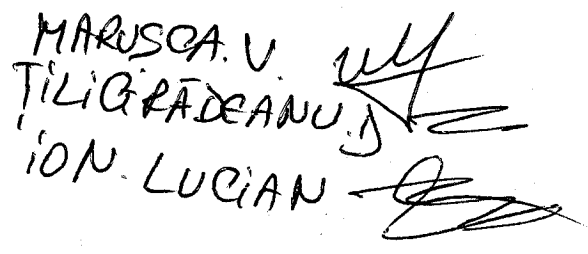 MARUSCA.V.
ȚILIGRĂDEANU.D
ION. LUCIAN